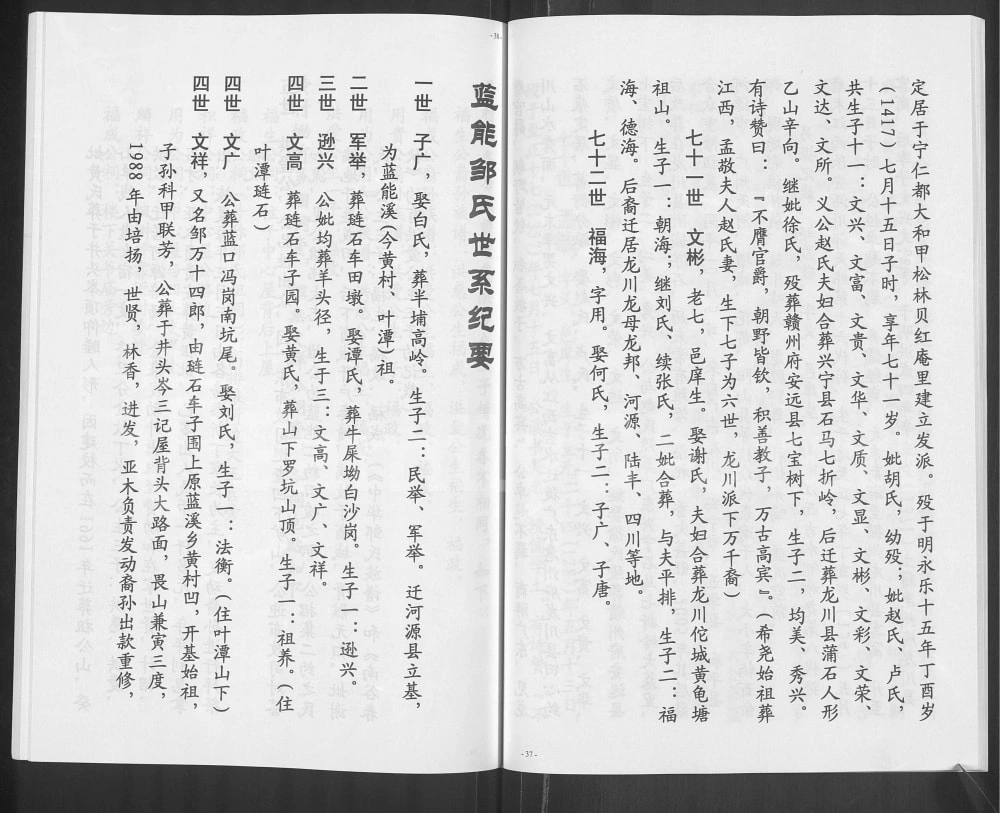 定居于宁仁都大和甲松林贝红庵里建立发派。殁于明永乐十五年丁酉岁
(1417)七月十五日子时，享年七十一岁。妣胡氏，幼殁；妣赵氏、卢氏，
共生子十一：文兴、文富、文贵、文华、文质、文显、文彬、文彩、文荣、
文达、文所。义公赵氏夫妇合葬兴宁县石马七折岭，后迁葬龙川县蒲石人形
乙山辛向。继妣徐氏，殁葬赣州府安远县七宝树下，生子二，均美、秀兴。
有诗赞曰：『不膺官爵，朝野皆钦，积善教子，万古高宾』。（希尧始祖葬
江西，孟敬夫人赵氏妻，生下七子为六世，龙川派下万千裔）
七十一世 文彬，老七，邑庠生。娶谢氏，夫妇合葬龙川佗城黄龟塘
祖山。生子一：朝海；继刘氏、续张氏，二妣合葬，与夫平排，生子二：福
海、德海。后裔迁居龙川龙母龙邦、河源、陆丰、四川等地。
七十二世 福海，字用。娶何氏，生子二：子广、子唐。
- 37 -
- 38 -
蓝能邹氏世系纪要
一世 子广，娶白氏，葬半埔高岭。生子二：民举、军举。迁河源县立基，
为蓝能溪(今黄村、叶潭)祖。
二世 军举，葬琏石车田墩。娶谭氏，葬牛屎坳白沙岗。生子一：逊兴。
三世 逊兴 公妣均葬羊头径，生于三：文高、文广、文祥。
四世 文高 葬琏石车子园。娶黄氏，葬山下罗坑山顶。生子一：祖养。（住
叶潭琏石）
四世 文广 公葬蓝口冯岗南坑尾。娶刘氏，生子一：法衡。（住叶潭山下）
四世 文祥，又名邹万十四郎，由琏石车子围上原蓝溪乡黄村凹，开基始祖，
子孙科甲联芳，公葬于井头岑三记屋背头大路面，畏山兼寅三度，
1988年由培扬，世贤，林香，进发，亚木负责发动裔孙出款重修，